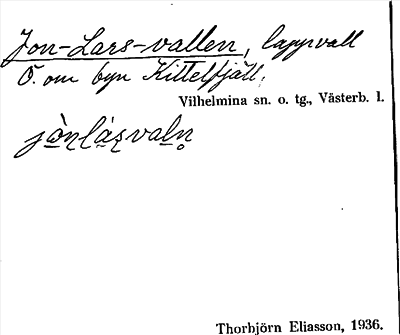 Jon-Lars-vallen, lappvall
Ö. om byn Kittelfjäll,
Vilhelmina sn. o. tg., Västerb. l.
jò̠n̠lásvaln̥
Thorbjörn Eliasson, 1936.